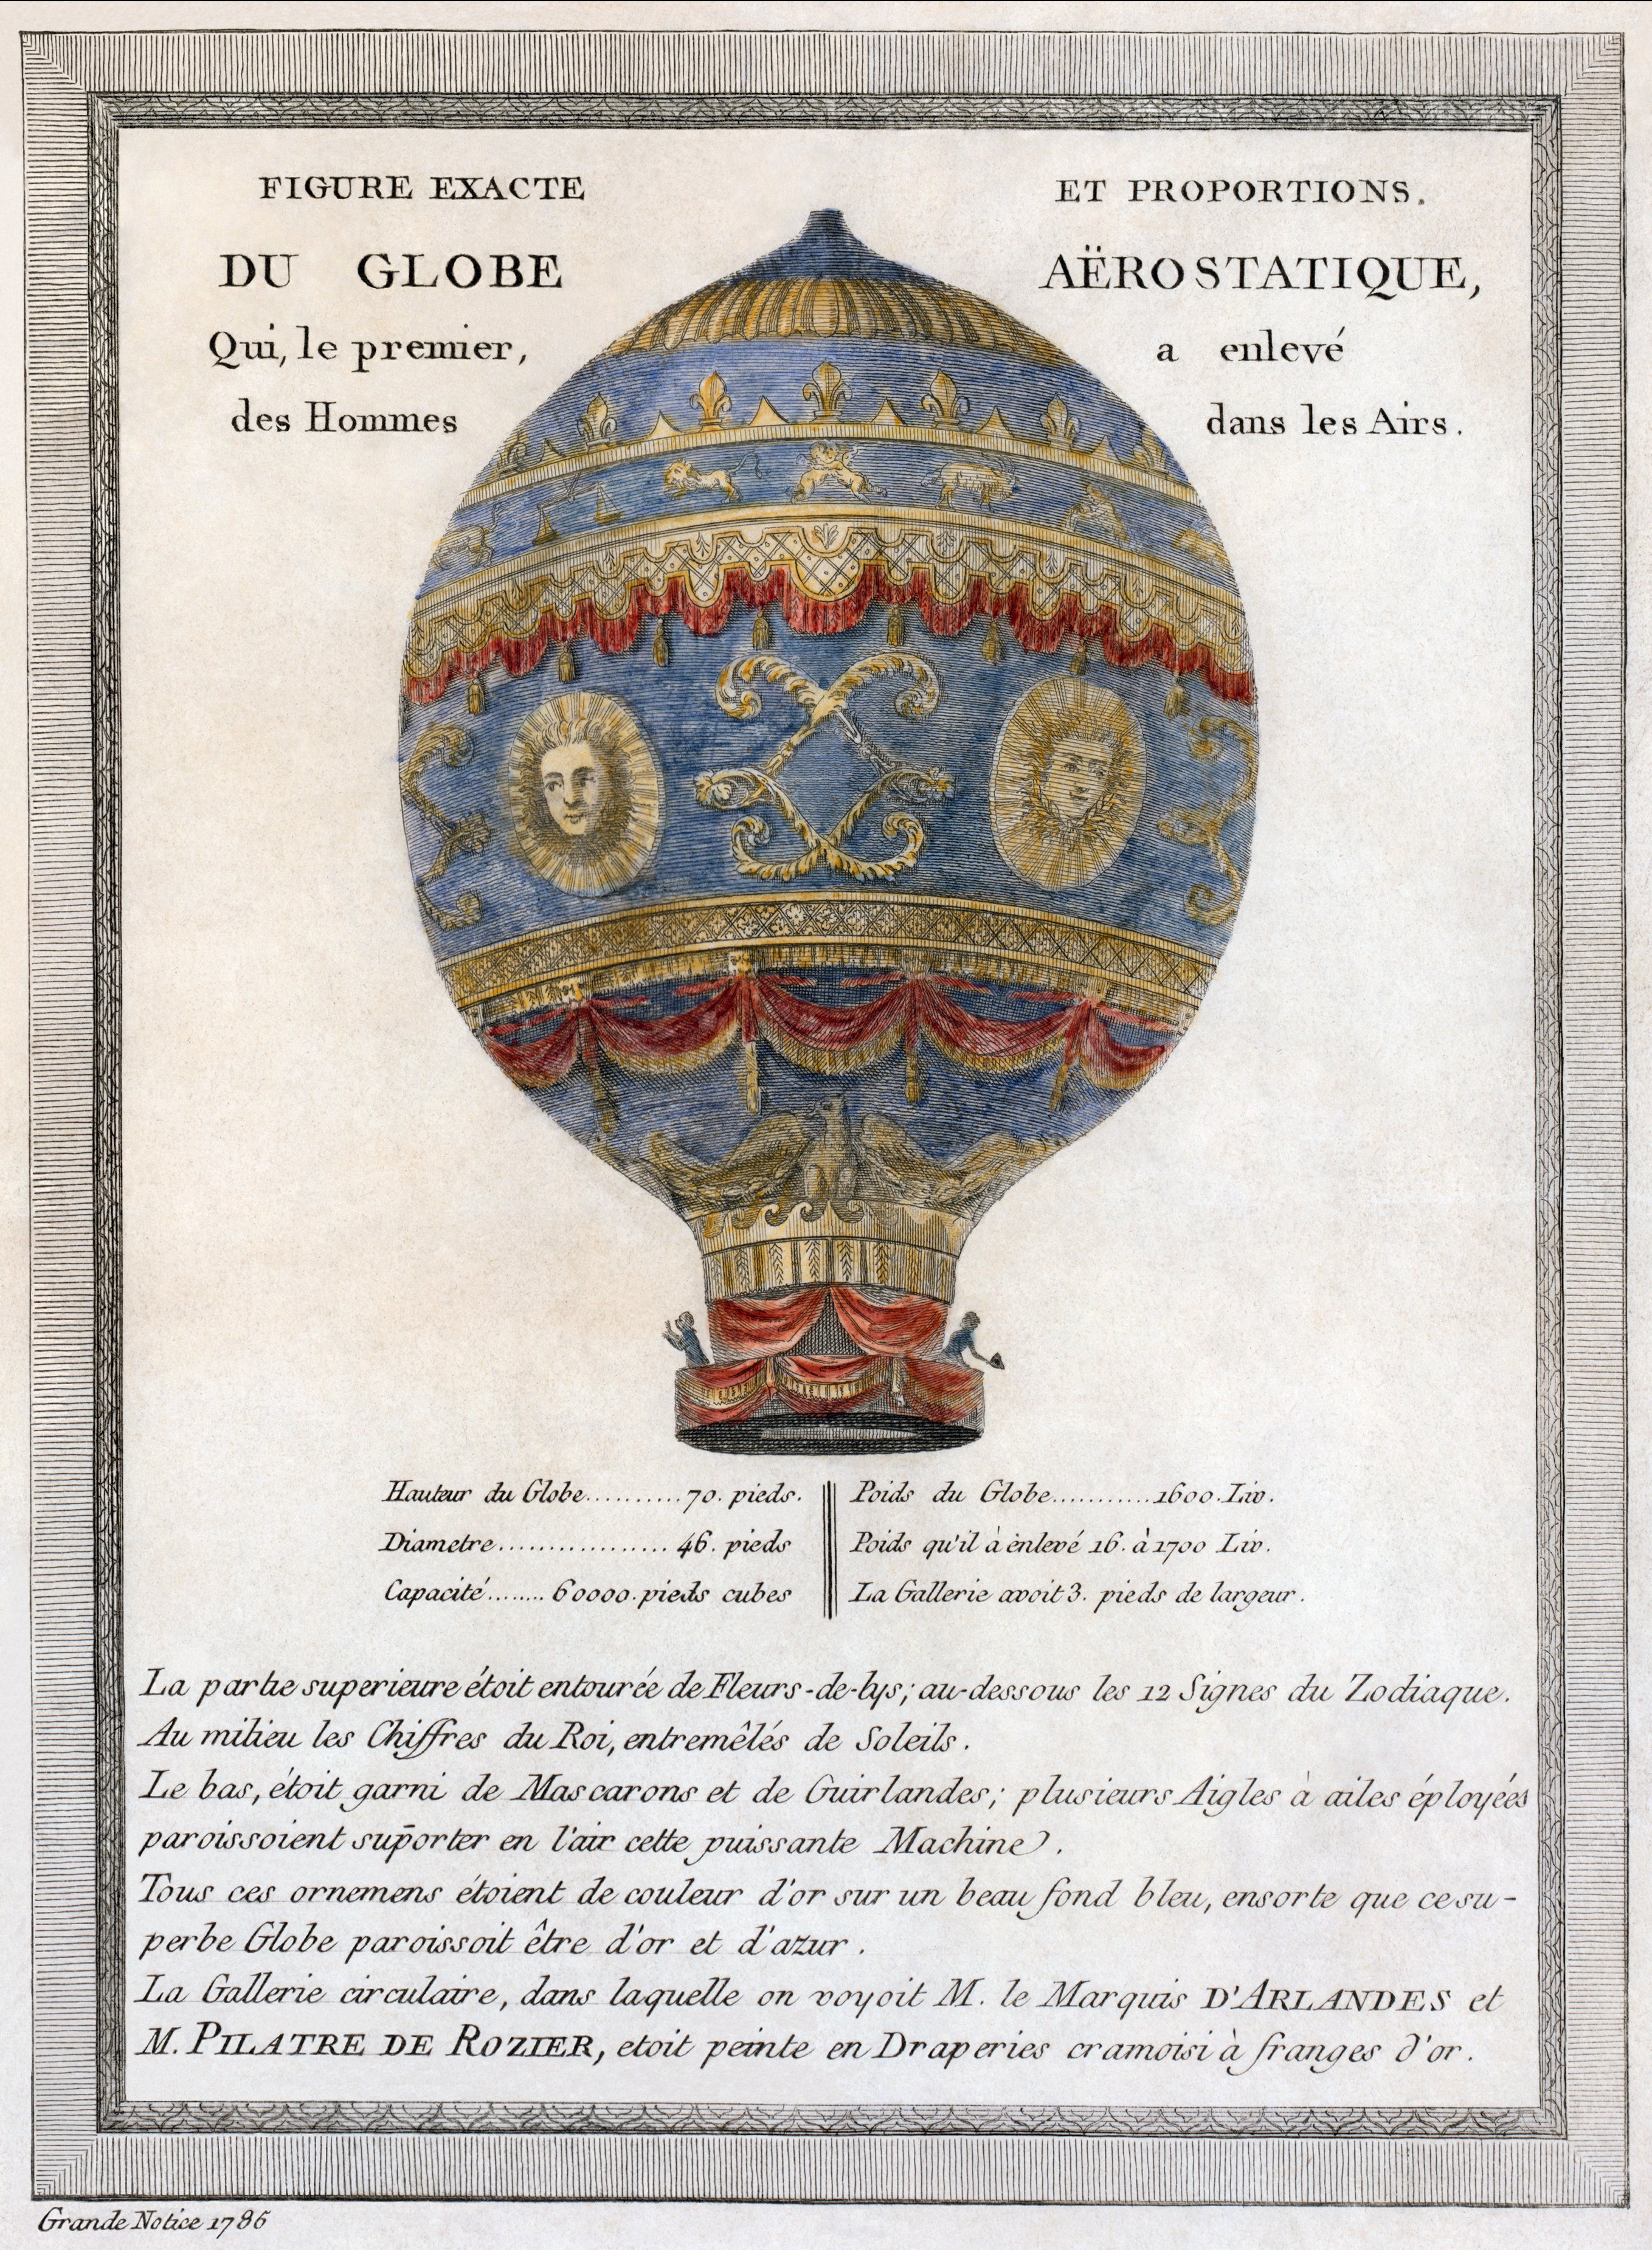 FIGURE EXACTE ET PROPORTIONS.
DU GLOBE AËROSTATIQUE,
Qui, le premier, a enlevé
des Hommes dans les Airs.
Hauteur du Globe..........70. pieds.
Diametre................. 46. pieds
Capacité....... 60000. pieds cubes
Poids du Globe...........1600. Liv.
Poids qu'il à enlevé 16. à 1700 Liv.
La Gallerie avoit 3. pieds de largeur.
La partie superieure étoit entourée de Fleurs-de-lys; au-dessous les 12 Signes du Zodiaque.
Au milieu les Chiffres du Roi, entremêlés de Soleils.
Le bas, étoit garni de Mascarons et de Guirlandes; plusieurs Aigles à ailes éployées
paroissoient sup̄orter en l'air cette puissante Machine.
Tous ces ornemens étoient de couleur d'or sur un beau fond bleu, ensorte que ce su-
perbe Globe paroissoit être d'or et d'azur.
La Gallerie circulaire, dans laquelle on voyoit M. le Marquis D'ARLANDES et
M. PILATRE DE ROZIER, etoit peinte en Draperies cramoisi à franges d'or.
Grande Notice 1786